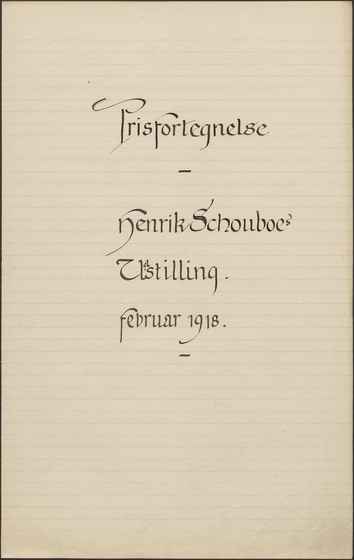 Prisfortegnelse
—
Henrik Schouboes
Udstilling.
februar 1918.
—